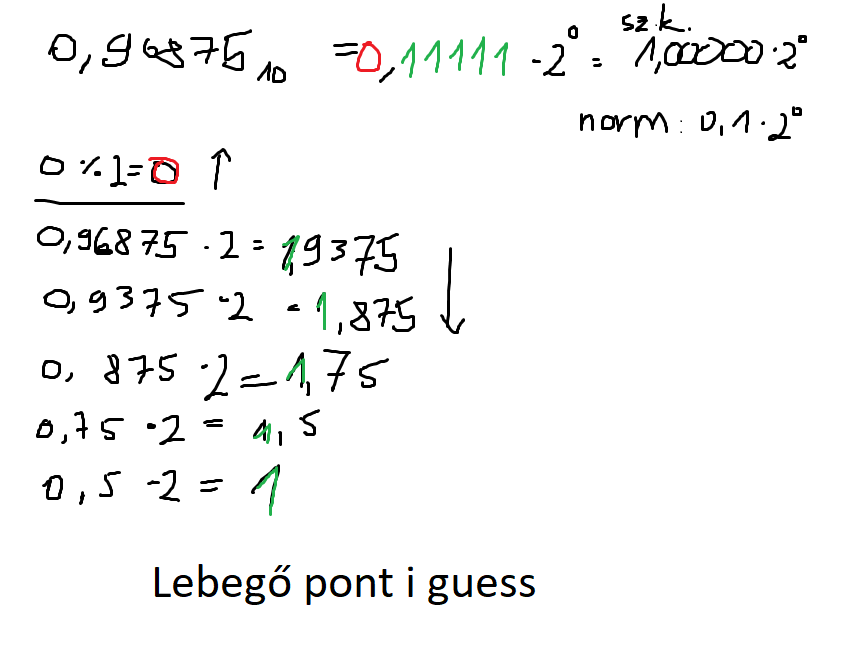 0,96875₁₀ = 0,11111 · 2⁰ = 1,00000 · 2⁰
sz.k.
norm: 0,1 · 2⁰
0 % 1 = 0 ↑
0,96875 · 2 = 1,9375
0,9375 · 2 - 1,875 ↓
0, 875 · 2 = 1,75
0,75 · 2 = 1,5
0,5 - 2 = 1
Lebegő pont i guess